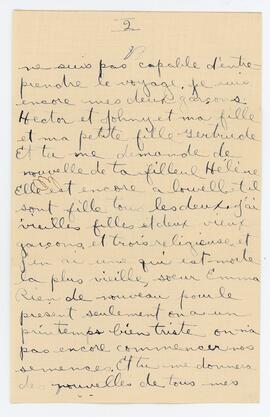 2
ne suis pas capable d'entre
prendre le voyage, je suis
encore mes deux garçons.
Hector et Johny et ma fille
et ma petite fille Gertrude
Et tu me demande de
nouvelle de ta filleul Hélène
Elle est encore a lowell
sont fille tous les deux j'ai
vieilles filles et deux vieux
garçons, et trois religieuse et
j'en ai une qui est morte
la plus vieille, soeur Emma
Rien de nouveau pour le
present seulement on a un
printemps bien triste on n'a
pas encore commencer nos
semences. Et tu me donnera
des nouvelles de tous mes